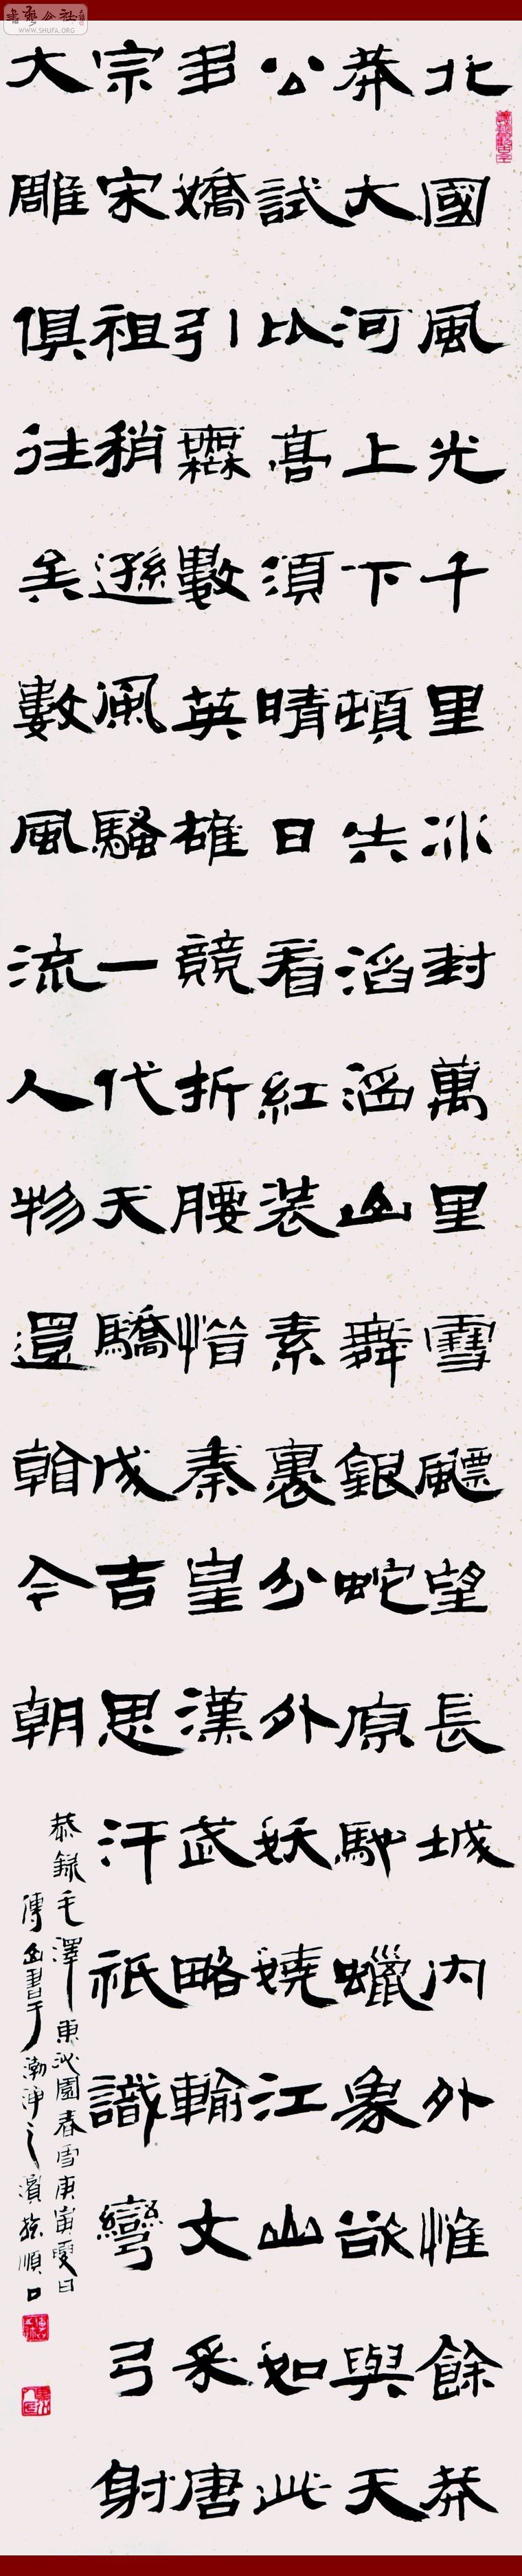 書藝公社
WWW.SHUFA.ORG
北國風光千里冰封萬里雪飄望長城內外惟餘莽
莽大河上下頓失滔滔山舞銀蛇原馳蠟象欲與天
公試比高須晴日看紅裝素裹分外妖嬈江山如此
多嬌引無數英雄競折腰惜秦皇漢武略輸文采唐
宗宋祖稍遜風騷一代天驕成吉思汗祇識彎弓射
大雕俱往矣數風流人物還看今朝
恭錄毛澤東沁園春雪庚寅夏日
傳山書于渤海之濱旅順口